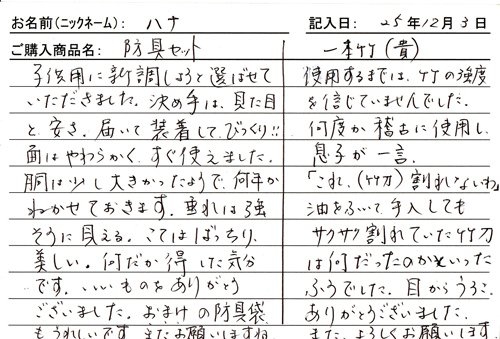 お名前(ニックネーム)： ハナ
記入日： 25年12月3日
ご購入商品名： 防具セット
一本竹(貴)
子供用に新調しようと選ばせて
いただきました。決め手は、見た目
と、安さ。届いて装着して、びっくり!!
面はやわらかく、すぐ使えました。
胴は少し大きかったようで、何年か
ねかせておきます。垂れは強
そうに見える。こてはばっちり、
美しい。何だか得した気分
です。いいものをありがとう
ございました。おまけの防具袋
もうれしいです。またお願いしますね
使用するまでは、竹の強度
を信じていませんでした。
何度か稽古に使用し、
息子が一言、
「これ、(竹刀)割れないわ」
油をふいて手入しても
サクサク割れていた竹刀
は何だったのかといった
ふうでした。目からうろこ、
ありがとうございました。
また、よろしくお願いします。